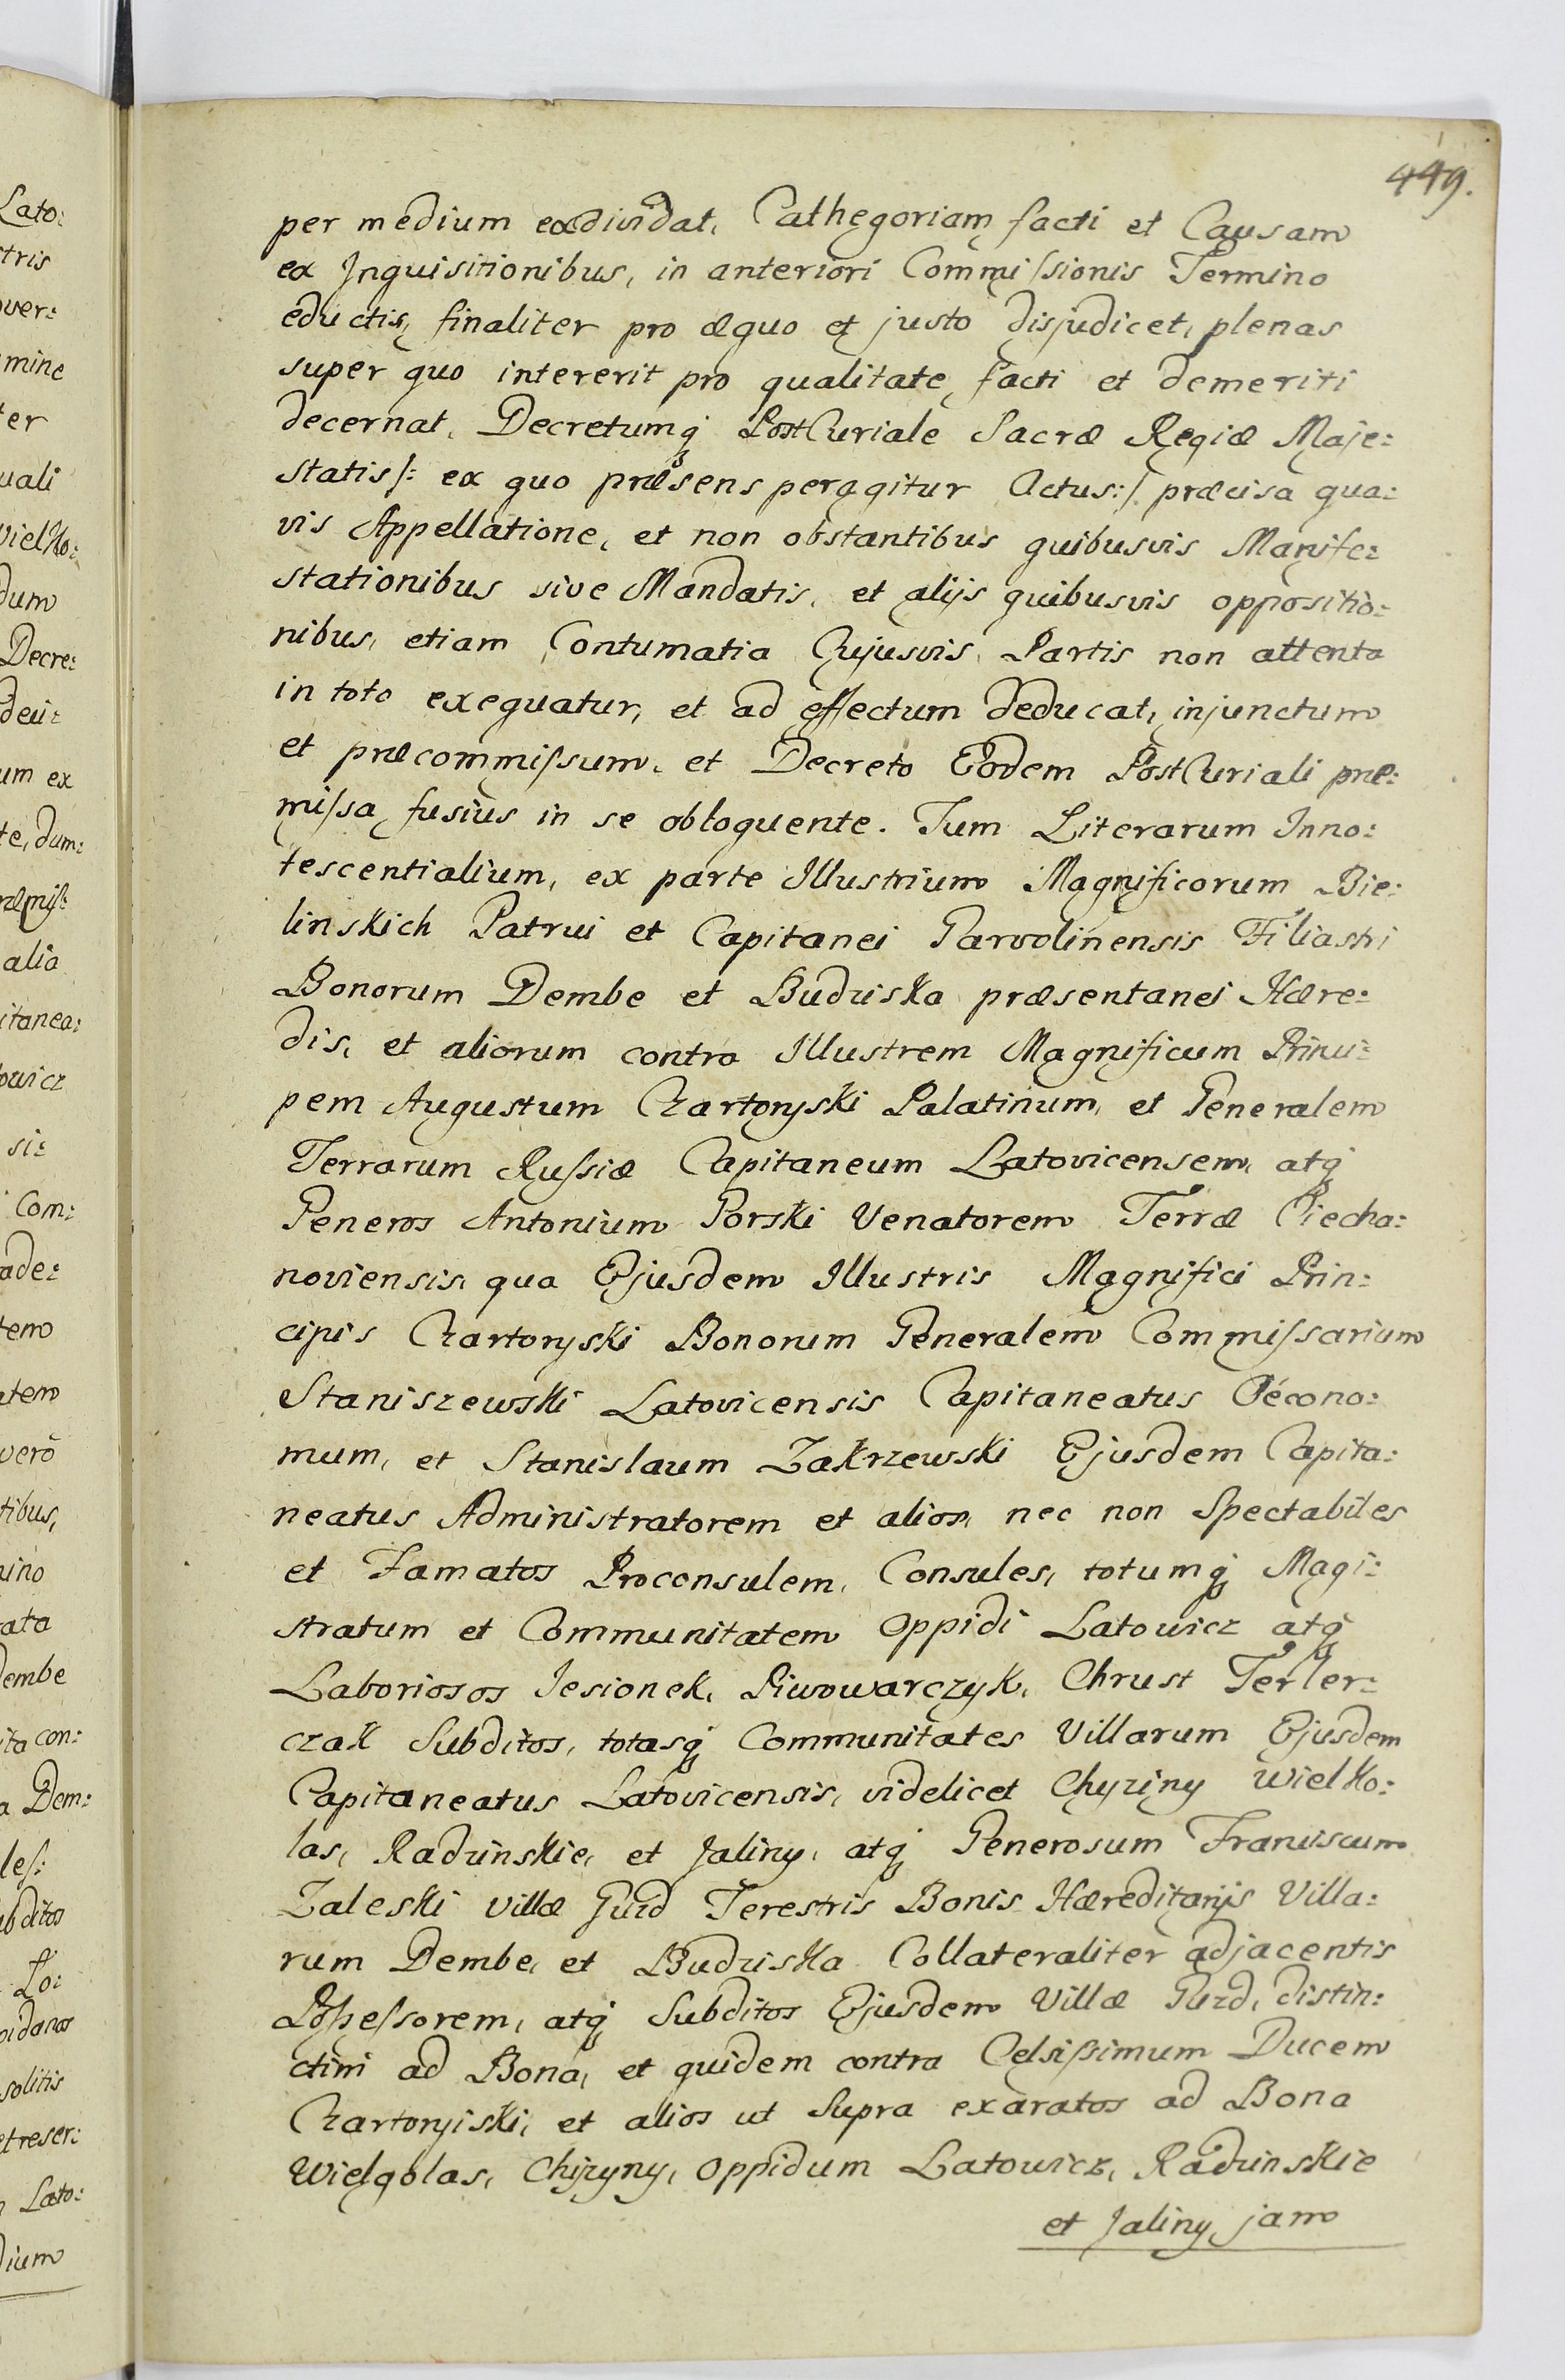 449.
per medium exdividat, Cathegoriam facti et Causam
ex Inquisitionibus, in anteriori Commissionis Termino
eductis, finaliter pro æquo et justo disjudicet, plenas
super quo intererit pro qualitate facti et demeriti
decernat, Decretumq PostCuriale Sacræ Regiæ Maje:
statis /: ex quo præsens peragitur Actus :/ præcisa qua:
vis Appellatione, et non obstantibus quibusvis Manife:
stationibus sive Mandatis, et alijs quibusvis oppositio:
nibus, etiam Contumatia Cujusvis Partis non attenta
in toto exequatur, et ad effectum deducat, injunctum
et præcommissum, et Decreto Eodem PostCuriali præ:
missa fusius in se obloquente. Tum Literarum Inno:
tescentialium, ex parte Illustrium Magnificorum Bie:
linskich Patrui et Capitanei Garvolinensis Filiastri
Bonorum Dembe et Budziska præsentanei Hære:
dis, et aliorum contra Illustrem Magnificum Princi:
pem Augustum Czartoryski Palatinum, et Generalem
Terrarum Russiæ Capitaneum Latovicensem, atq
Generos Antonium Gorski Venatorem Terræ Ciecha:
noviensis, qua Ejusdem Illustris Magnifici Prin:
cipis Czartoryski Bonorum Generalem Commissarium
Staniszewski Latovicensis Capitaneatus Oécono:
mum, et Stanislaum Zakrzewski Ejusdem Capita:
neatus Administratorem et alios, nec non Spectabiles
et Famatos Proconsulem, Consules, totumq Magi:
stratum et Communitatem Oppidi Latowicz atq
Laboriosos Jesionek, Piwowarczyk, Chrust Terler:
czak Subditos, totasq Communitates Villarum Ejusdem
Capitaneatus Latovicensis, videlicet Chyziny Wielko:
las, Radzinskie, et Jaliny, atq Generosum Franciscum
Zaleski Villæ Guzd Terestris Bonis Hæreditarijs Villa:
rum Dembe, et Budziska Collateraliter adjacentis
Possessorem, atq Subditos Ejusdem Villæ Guzd, distin:
ctim ad Bona, et quidem contra Celsissimum Ducem
Czartoryiski, et alios ut Supra exaratos ad Bona
Wielgolas, Chyzyny, Oppidum Latowicz, Radzinskie
et Jaliny jam